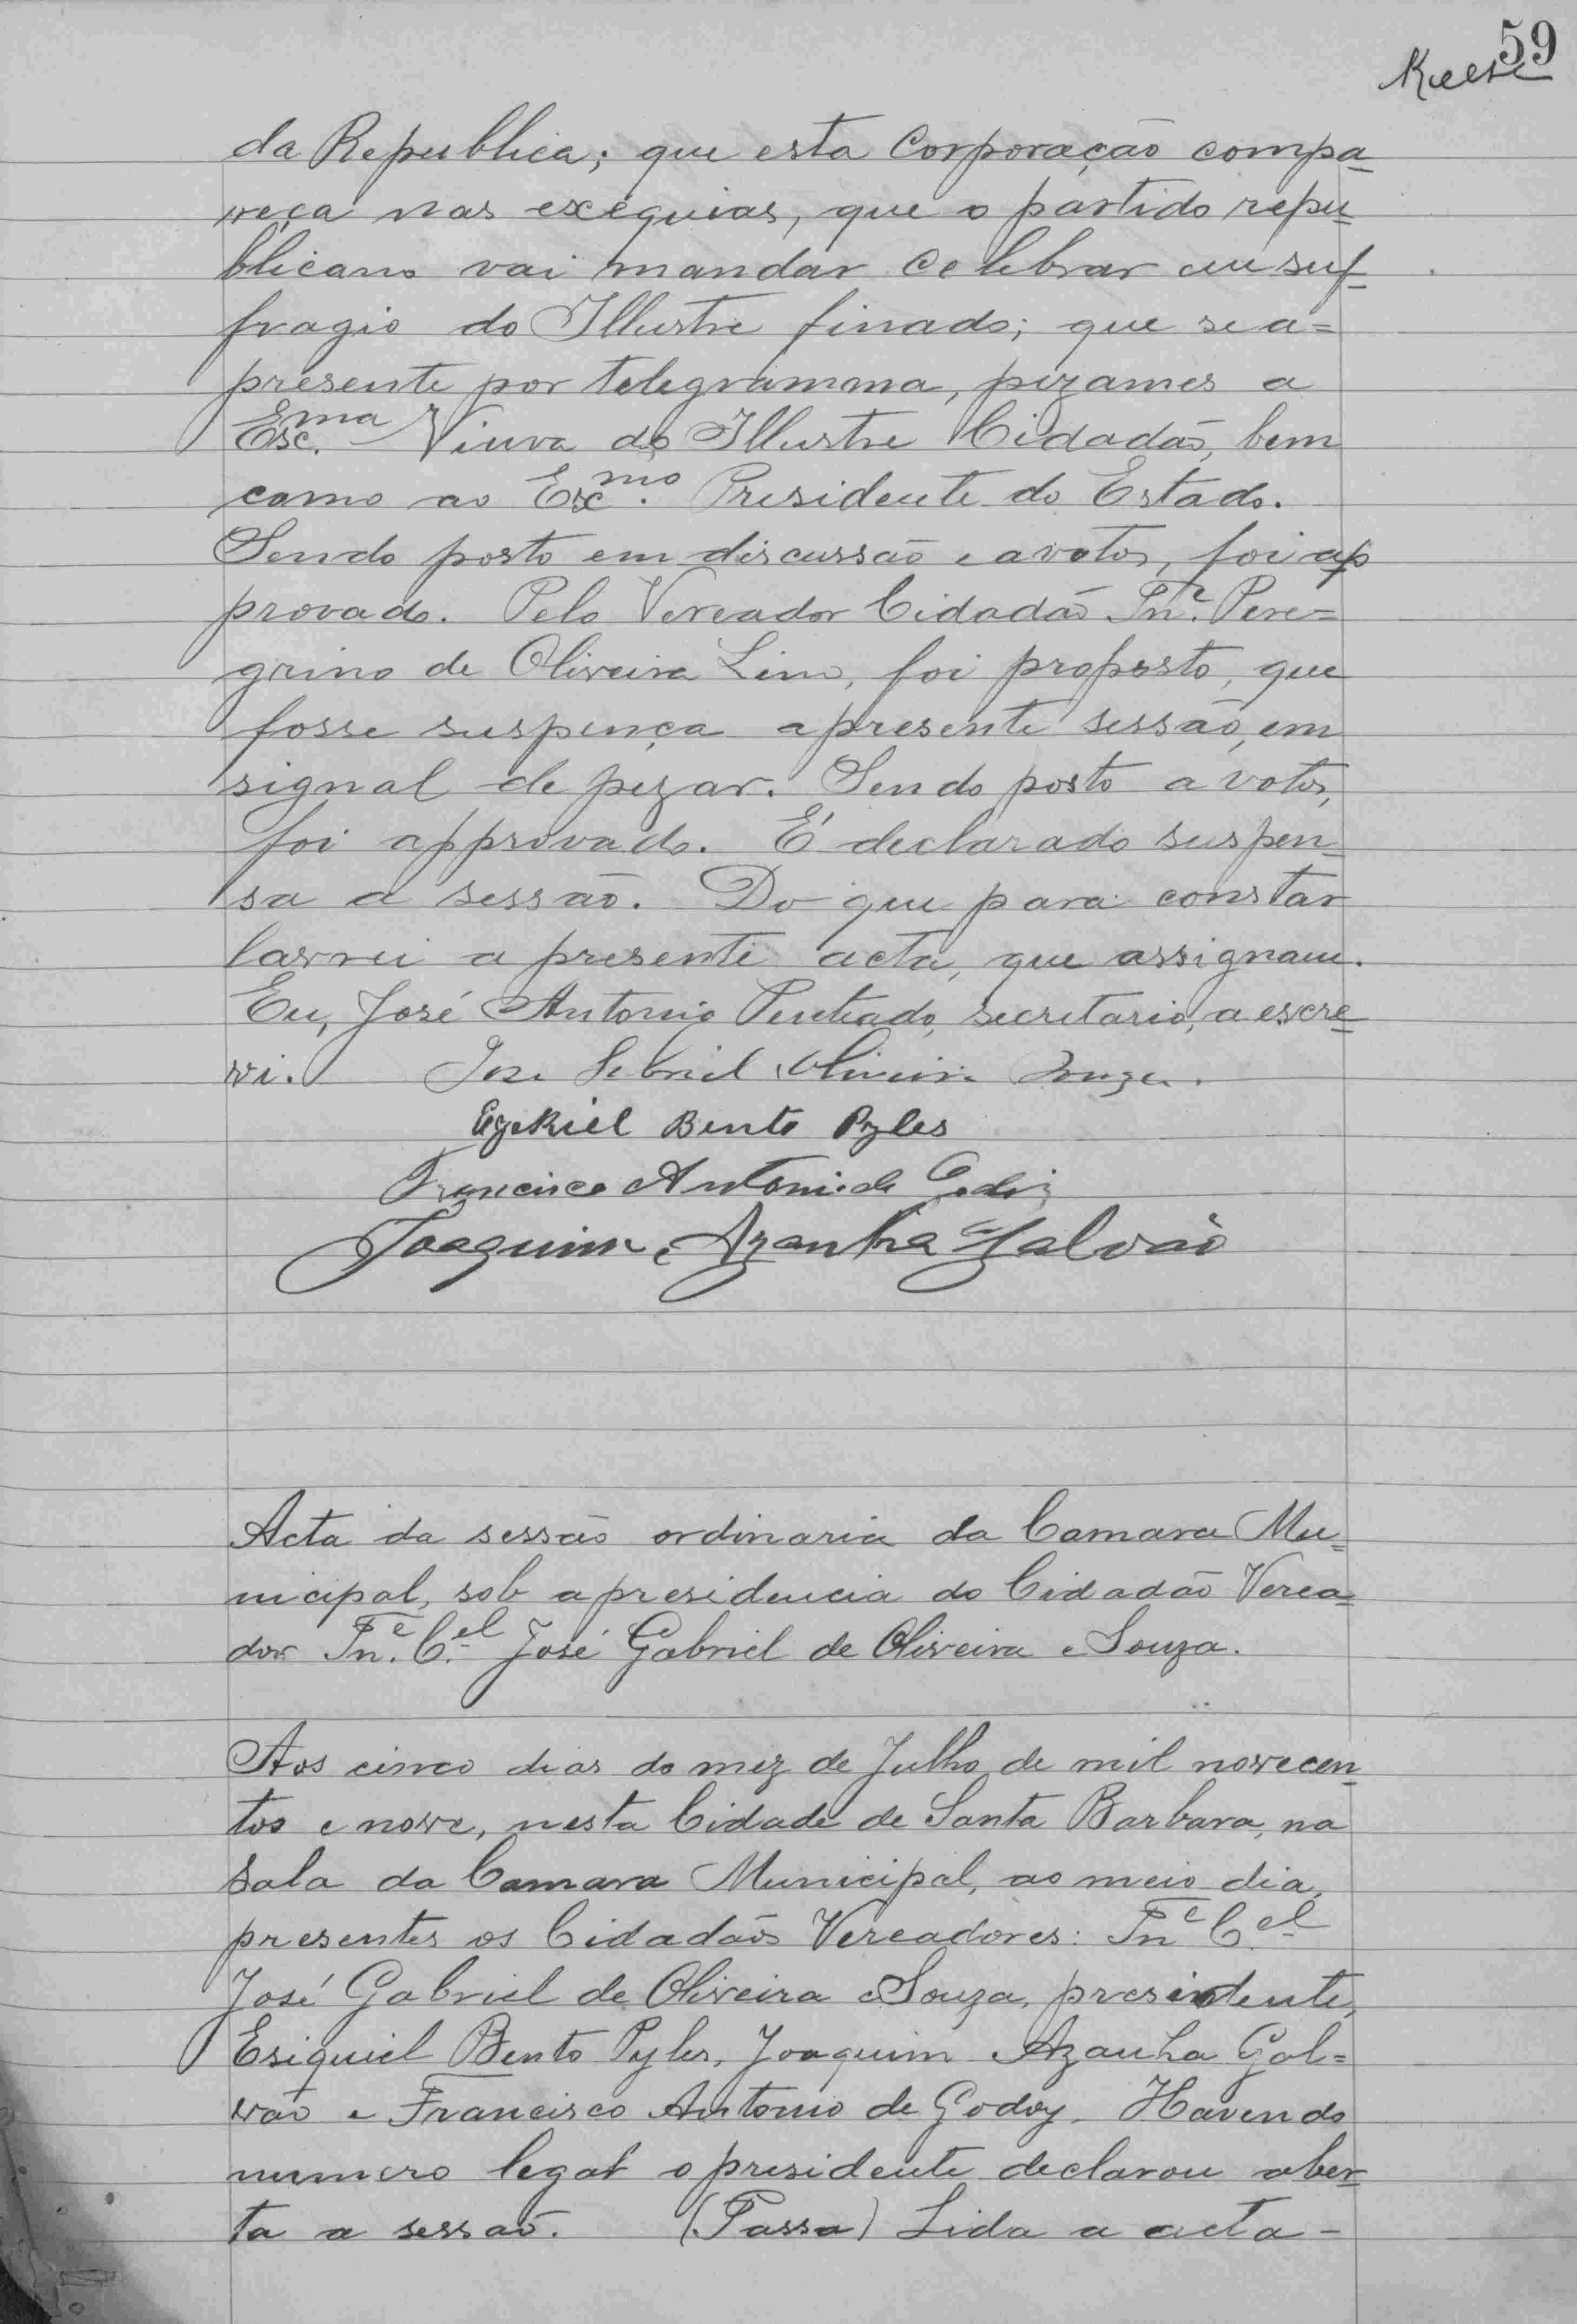 59
da Republica; que esta Corporação compa
reça nas exéquias, que o partido repu
blicano vai mandar celebrar em suf
fragio do Illustre finado; que se a=
presente por telegramma, pezames a
Exc.ma Viuva do Illustre Cidadão, bem
como ao Exc.mo Presidente do Estado.
Sendo posto em discussão e a votos, foi ap
provado. Pelo Vereador Cidadão Tn.e Pere=
grino de Oliveira Lino, foi proposto, que
fosse suspença a presente sessão, em
signal de pezar. Sendo posto a votos,
foi approvado. É declarado suspen
sa a sessão. Do que para constar
lavrei a presente acta, que assignam.
Eu, José Antonio Penteado, secretario, a escre
vi. José Gabriel Oliveira Souza.
Ezekiel Bento Pyles
Francisco Antonio de Godoi
Joaquim Azanha Galvão
Acta da sessão ordinaria da Camara Mu=
nicipal, sob a presidencia do Cidadão Verea=
dor Tn.e C.el José Gabriel de Oliveira e Souza.
Aos cinco dias do mez de Julho de mil novecen
tos e nove, nesta Cidade de Santa Barbara, na
Sala da Camara Municipal, ao meio dia,
presentes os Cidadãos Vereadores: Tn.e C.el
José Gabriel de Oliveira e Souza, presindente,
Esiquiel Bento Pyles, Joaquim Azanha Gal=
vão e Francisco Antonio de Godoy. Havendo
numero legal o presidente declarou aber
ta a sessão. (Passa) Lida a acta-